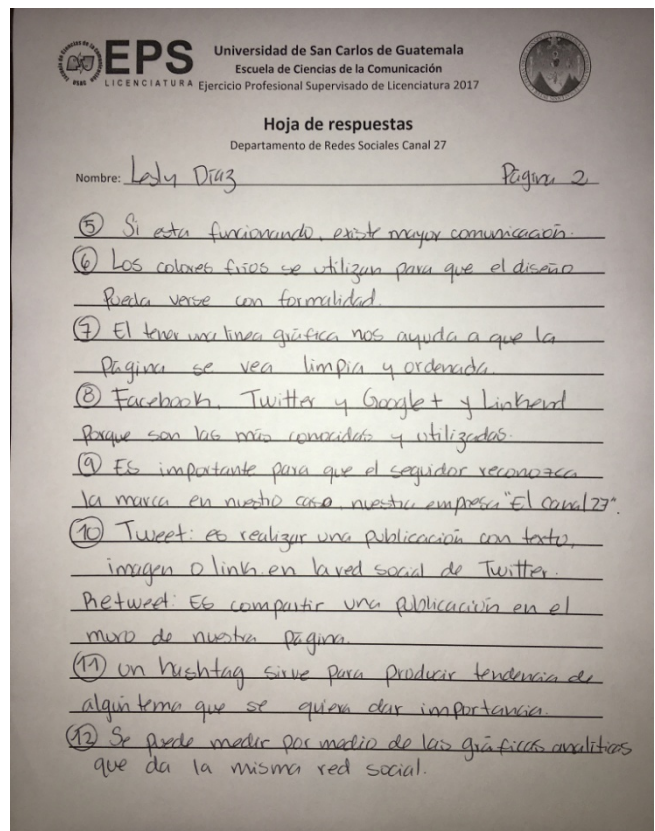 EPS
LICENCIATURA
Universidad de San Carlos de Guatemala
Escuela de Ciencias de la Comunicación
Ejercicio Profesional Supervisado de Licenciatura 2017
Hoja de respuestas
Departamento de Redes Sociales Canal 27
Nombre: Lesly Díaz Página 2
⑤ Si esta funcionando, existe mayor comunicación.
⑥ Los colores frios se utilizan para que el diseño
Pueda verse con formalidad.
⑦ El tener una linea gráfica nos ayuda a que la
Página se vea limpia y ordenada.
⑧ Facebook, Twitter y Google+ y Linkend
Porque son las más conocidas y utilizadas.
⑨ Es importante para que el seguidor reconozca
la marca en nuestro caso, nuestra empresa "El canal 27".
⑩ Tweet: es realizar una publicación con texto,
imagen o link en la red social de Twitter.
Retweet: Es compartir una publicación en el
muro de nuestra página.
⑪ un hashtag sirve para producir tendencia de
algún tema que se quiera dar importancia.
⑫ Se puede medir por medio de las gráficas analíticas
que da la misma red social.